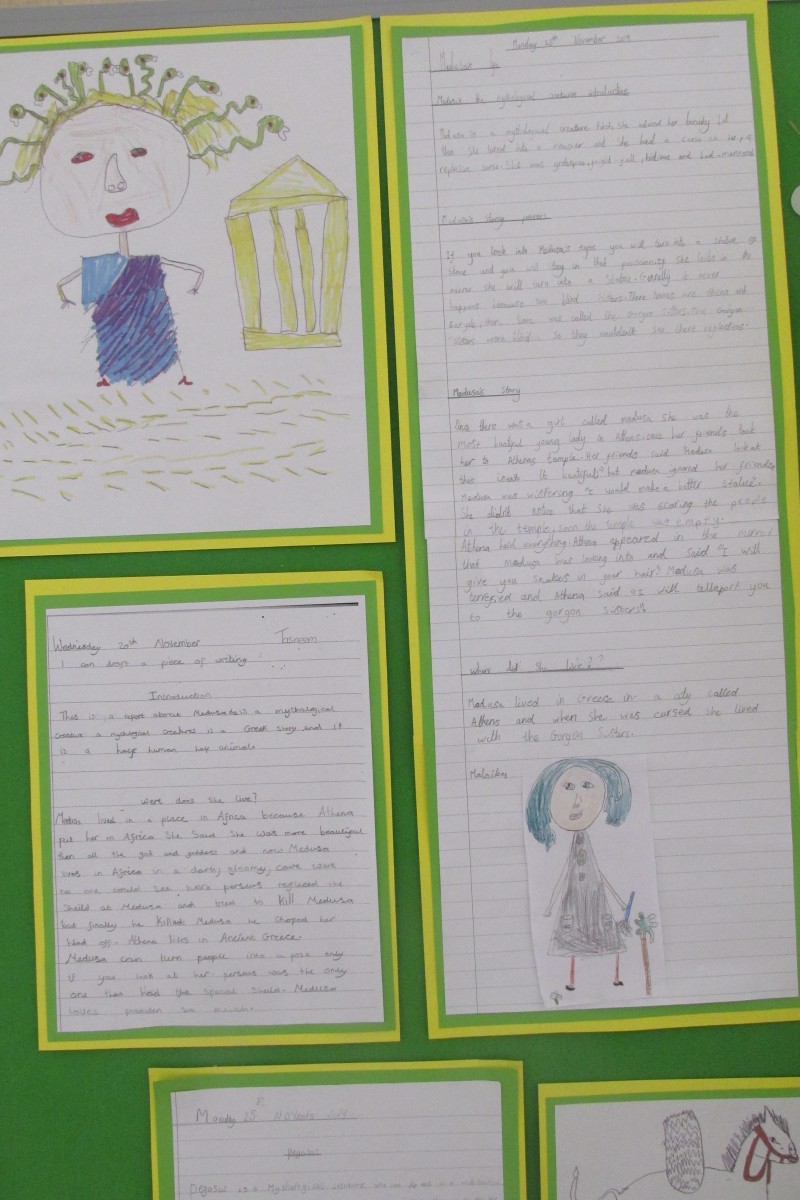 Monday 25th November
Medusa the mythological creature introduction
Medusa is a mythological creature. First, she adored her beauty but
then she turned into a monster and she had a curse on her,
Medusa's strong powers
If you look into Medusa's eyes you will turn into a statue of
stone and you will stay in that possision. If she looks in the
mirror she will turn into a statue. Generally it never
happens because
the gorgon
sisters were blind. So they wouldn't see there reflections.
Medusa's Story
Once there was a girl called medusa she was the
most beatiful young lady in Athens. once her friends took
her to Athenas temple. Her friends said Medusa look at
this isnt it beatiful? but medusa ignored her friends
Medusa was wispering "I would make a better statue".
She didn't notice that she was scaring the people
in the temple, soon the temple was empty.
Athena herd everything. Athena appeared in the mirror
that medusa was looking into and said "I will
give you snakes in your hair" Medusa was
terrefied and Athena said "I will tellaport you
to the gorgon sisters".
Where did she live??
Medusa lived in Greece in a city called
Athens and when she was cursed she lived
with the Gorgon Sisters.
Malaika
Wednesday 20th November Tasneem
I can draft a piece of writing
Introduction
This is a report about Medusa. is a mythological
creature a myological creatures is a Greek story and it
is a half human half animal.
were does she live?
Medusa lived in a place in Africa because Athena
put her in Africa She Said She was more beautiful
then all the god and goddess and now Medusa
lives in Africa in a dark, gloomy, cave were
no one could see here perseus reflected the
sheild at Medusa and tried to kill Medusa
but finally he killed Medusa he choped her
head off. Athena lives in Ancient Greece.
Medusa can turn people into a pose only
if you look at her. perseus was the only
one that had the special sheild. Medusa
Monday 25 November
Pegasus
Pegasus is a Mythological creature